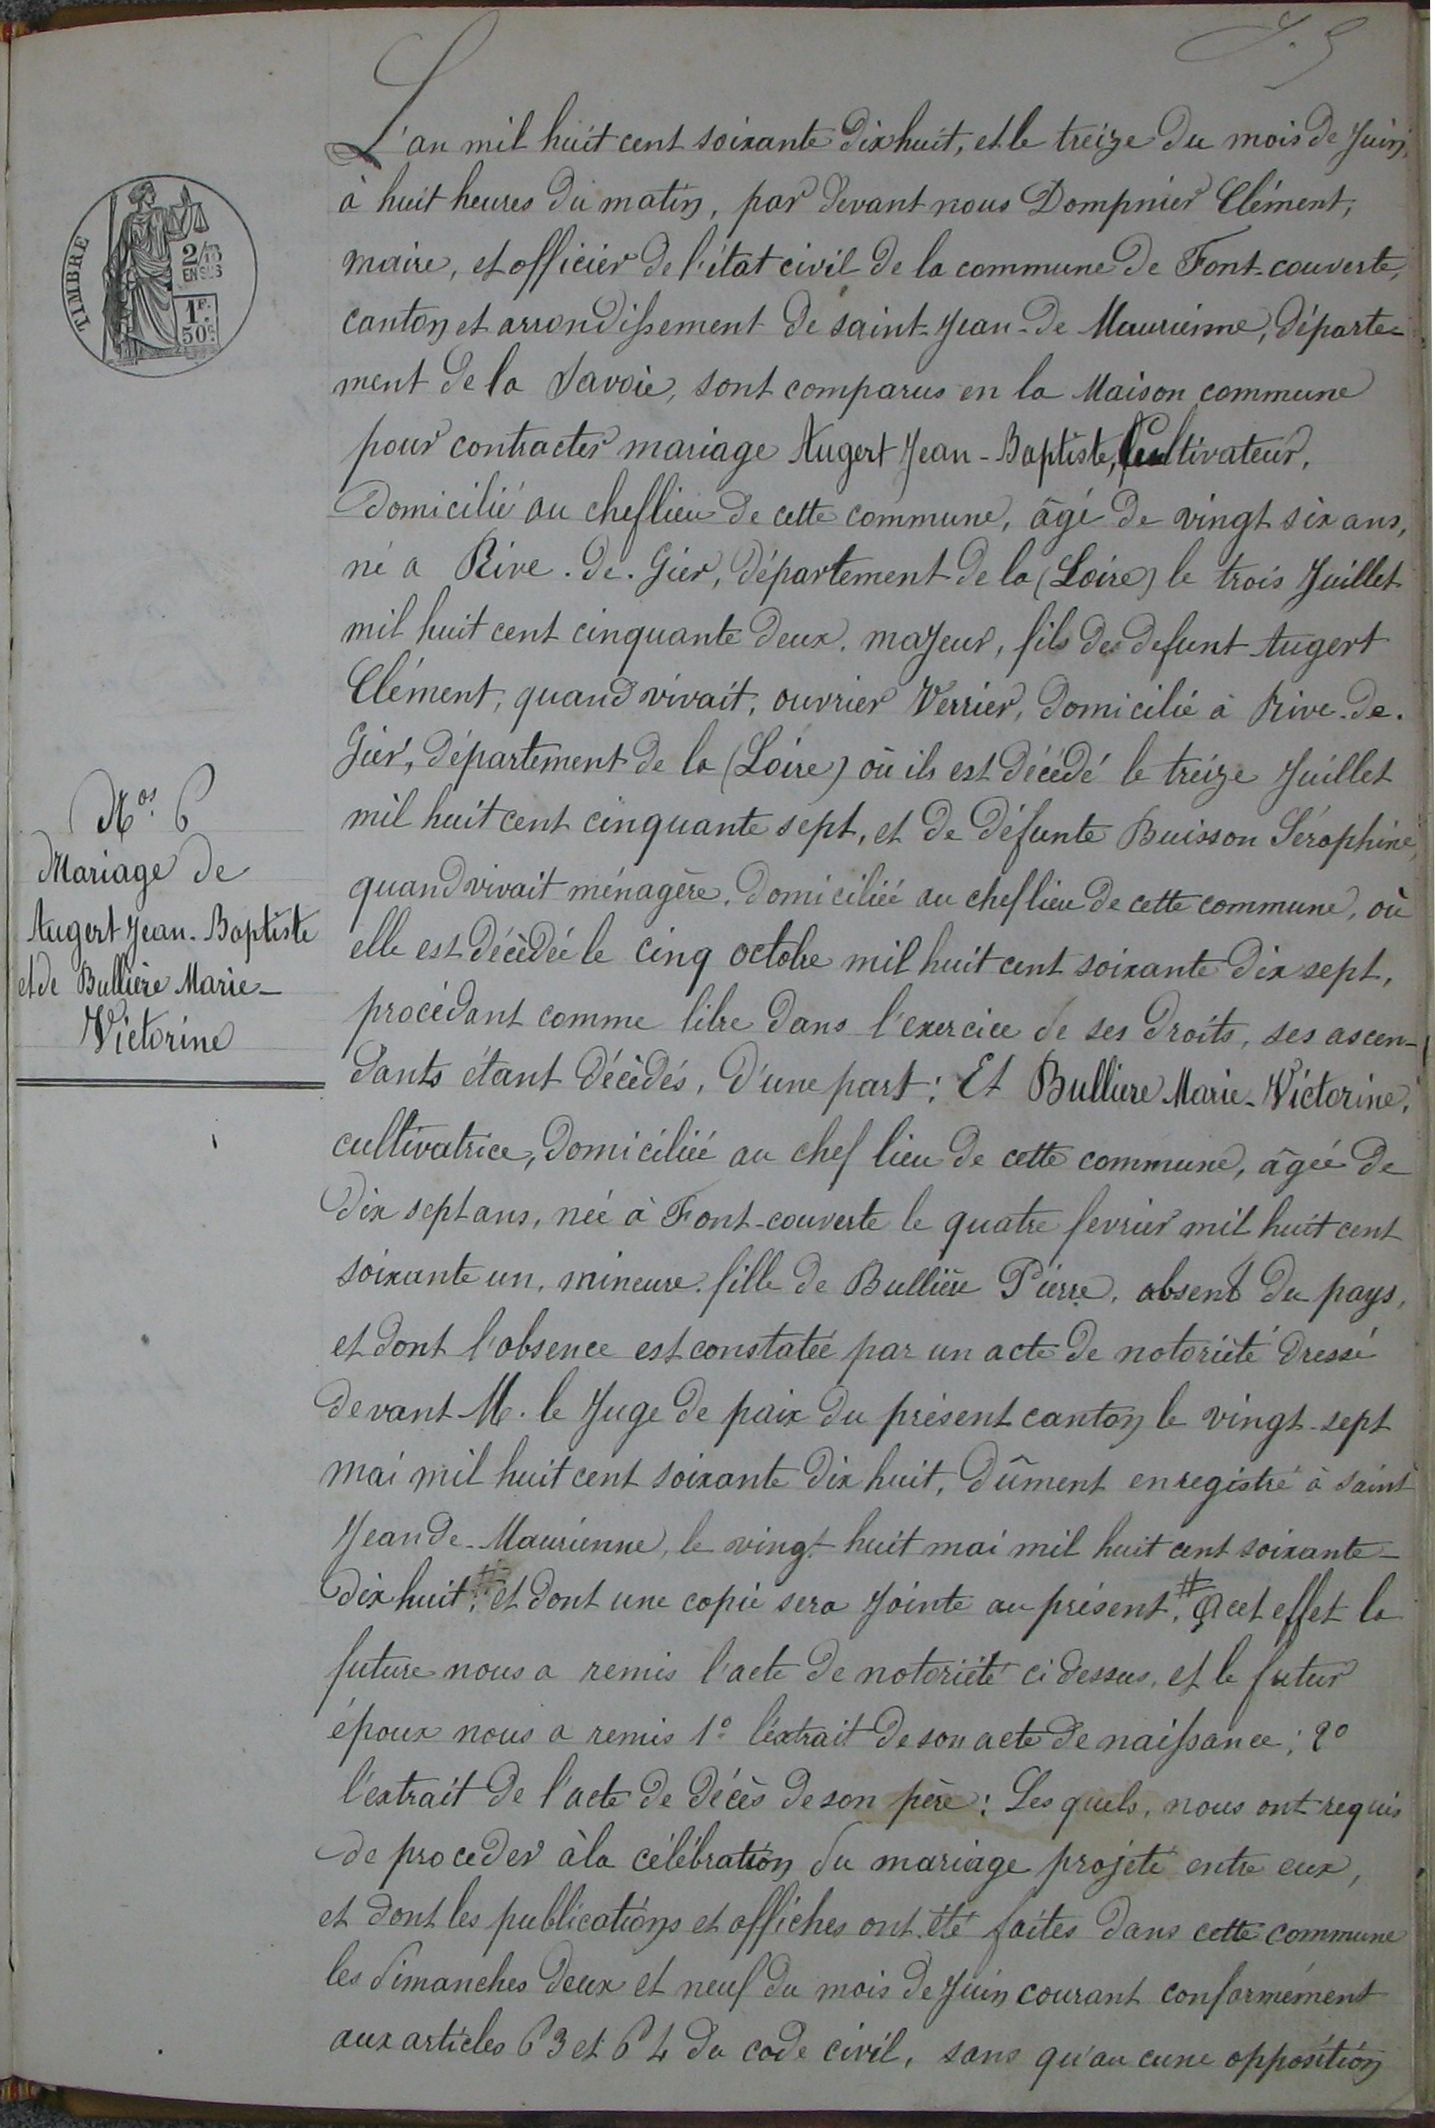 J. S
L'an mil huit cent soixante dix huit, et le treize du mois de Juin,
à huit heures du matin, par devant nous Dompnier Clément,
maire, et officier de l'état civil de la commune de Font-couverte,
canton et arrondissement de saint-Jean-de Maurienne, départe-
ment de la Savoie, sont comparus en la Maison commune
pour contracter mariage Augert Jean-Baptiste, Cultivateur,
domicilié au cheflieu de cette commune, âgé de vingt six ans,
né a Rive.de.Gier, département de la (Loire) le trois Juillet
mil huit cent cinquante deux. majeur, fils des defunt Augert
Clément, quand vivait, ouvrier Verrier, domicilié à Rive.de.
Gier, département de la (Loire) où ils est décédé le treize Juillet
mil huit cent cinquante sept, et de défunte Buisson Séraphine,
quand vivait ménagère, domiciliée au cheflieu de cette commune, où
elle est décèdée le cinq octobre mil huit cent soixante dix sept,
procédant comme libre dans l'exercice de ses droits, ses ascen-
dants étant décèdés, d'une part; Et Bullière Marie-Victorine,
cultivatrice, domiciliée au chef lieu de cette commune, âgée de
dix sept ans, née à Font-couverte le quatre fevrier mil huit cent
soixante un, mineure. fille de Bullière Pierre, absent du pays,
et dont l'absence est constatée par un acte de notoriété dressé
devant M. le Juge de paix du présent canton le vingt-sept
mai mil huit cent soixante dix huit, dûment enregistré à saint
Jean de-Maurienne, le vingt huit mai mil huit cent soixante-
dix huit, et dont une copie sera jointe au présent, # A cet effet la
future nous a remis l'acte de notoriété ci dessus, et le futur
époux nous a remis 1º l'extrait de son acte de naissance; 2º
l'extrait de l'acte de décès de son père: Les quels, nous ont requis
de proceder à la célébration du mariage projeté entre eux,
et dont les publications et affiches ont été faites dans cette commune
les dimanches deux et neuf du mois de Juin courant conformément
aux articles 63 et 64 du code civil, sans qu'au cune opposition
TIMBRE
2/10
EN SUS
1F.
50c.
Nos 6
Mariage de
Augert Jean-Baptiste
et de Bullière Marie-
Victorine